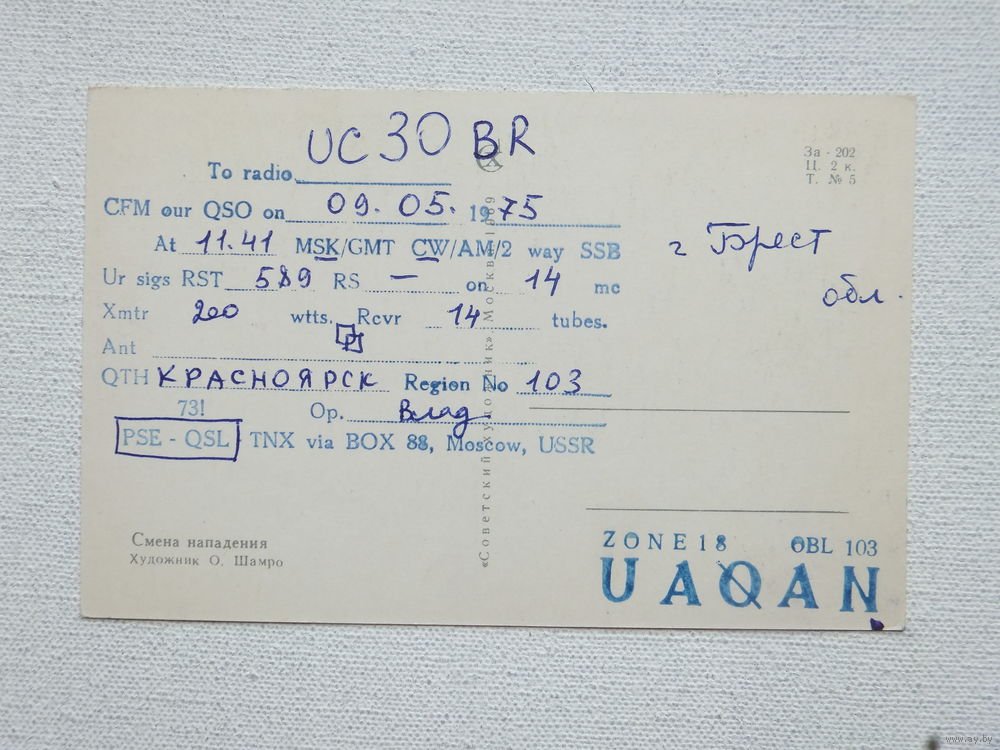 UC30BR
To radio
CFM our QSO on 09. 05. 1975
At 11.41 MSK/GMT CW/AM/2 way SSB
Ur sigs RST 589 RS — on 14 mc
Xmtr 200 wtts. Rcvr 14 tubes.
Ant
QTH КРАСНОЯРСК Region No 103
73! Op. Влад
PSE - QSL TNX via BOX 88, Moscow, USSR
Смена нападения
Художник О. Шамро
«Советский художник» Москва 1969
За - 202
Ц. 2 к.
Т. № 5
г Брест
обл.
ZONE 18 OBL 103
UAØAN
www.ay.by